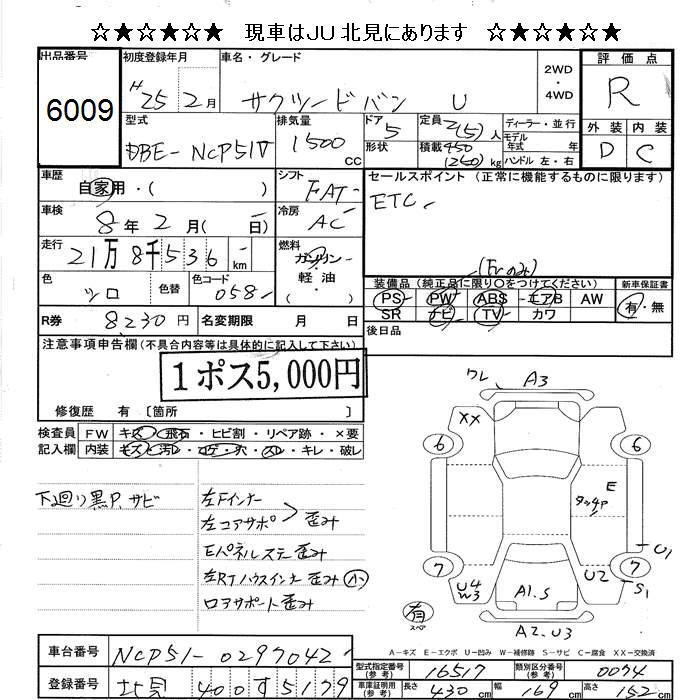 ☆★☆★☆★ 現車はJU北見にあります ☆★☆★☆★
出品番号
6009
初度登録年月
H25 2月
車名・グレード
サクシードバン U
2WD
・
4WD
評価点
R
外装 内装
D C
型式
DBE-NCP51V
排気量
1500 CC
ドア 5
形状
定員 2(5)人
積載 450 (250) kg
ディーラー・並行
モデル年式 年
ハンドル 左・右
車歴
自家用・( )
シフト
FAT
セールスポイント (正常に機能するものに限ります)
ETC
車検
8年 2月 ( 日)
冷房
AC
走行
21万8千536 km
燃料
ガソリン
軽油
( )
(Frのみ)
色
シロ
色替
色コード
058
装備品 (純正品に限り○をつけてください)
PS PW ABS エアB AW
SR ナビ TV カワ
新車保証書
有・無
R券 8230円
名変期限 月 日
後日品
注意事項申告欄 (不具合内容等は具体的に記入して下さい)
1ポス5,000円
修復歴 有 〔箇所 〕
検査員記入欄
FW キズ・飛石・ヒビ割・リペア跡・×要
内装 キズ・汚レ・コゲ・穴・スレ・キレ・破レ
下廻り黒P、サビ
左Fインナー
左コアサポ > 歪み
Eパネルステー歪み
左RTハウスインナー歪み 小
ロアサポート歪み
ワレ A3
XX
6 6
E
タッチP
U1
7 7
U4
W3
U2
S1
A1.S
有
スペア
A2.U3
A-キズ E-エクボ U-凹み W-補修跡 S-サビ C-腐食 XX-交換済
車台番号 NCP51-0297042
登録番号 北見 400 す 5179
型式指定番号 (参考) 16517
類別区分番号 (参考) 0074
車庫証明用 (参考) 長さ 430 cm 幅 169 cm 高さ 152 cm